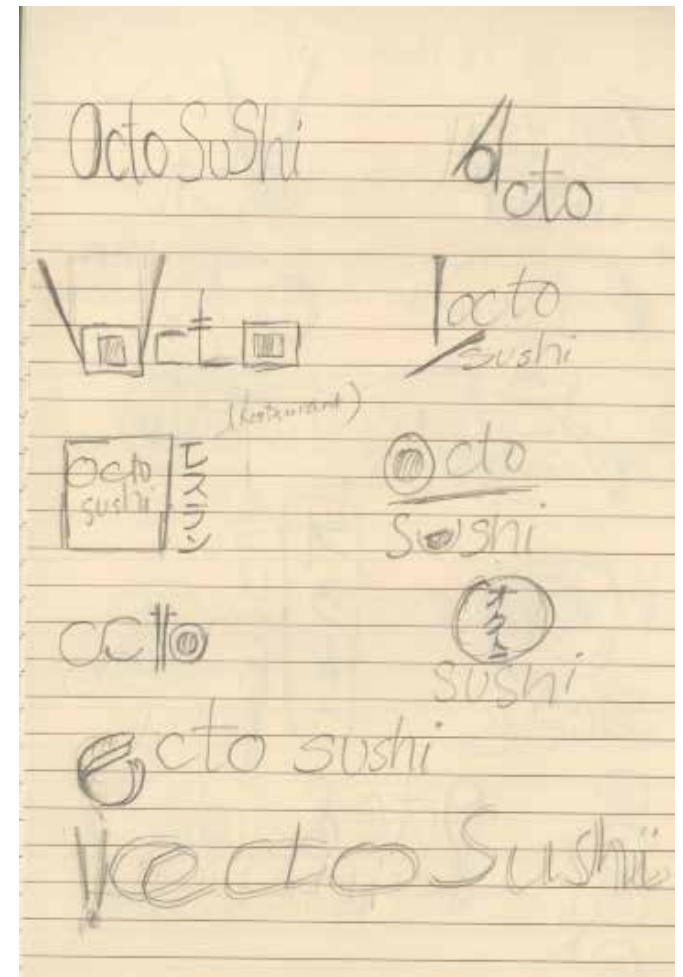 Octo SuShi
Octo
octo
octo
sushi
(Restaurant)
Octo
sushi
Octo
Sushi
octo
オクト
sushi
Octo sushi
octo Sushi